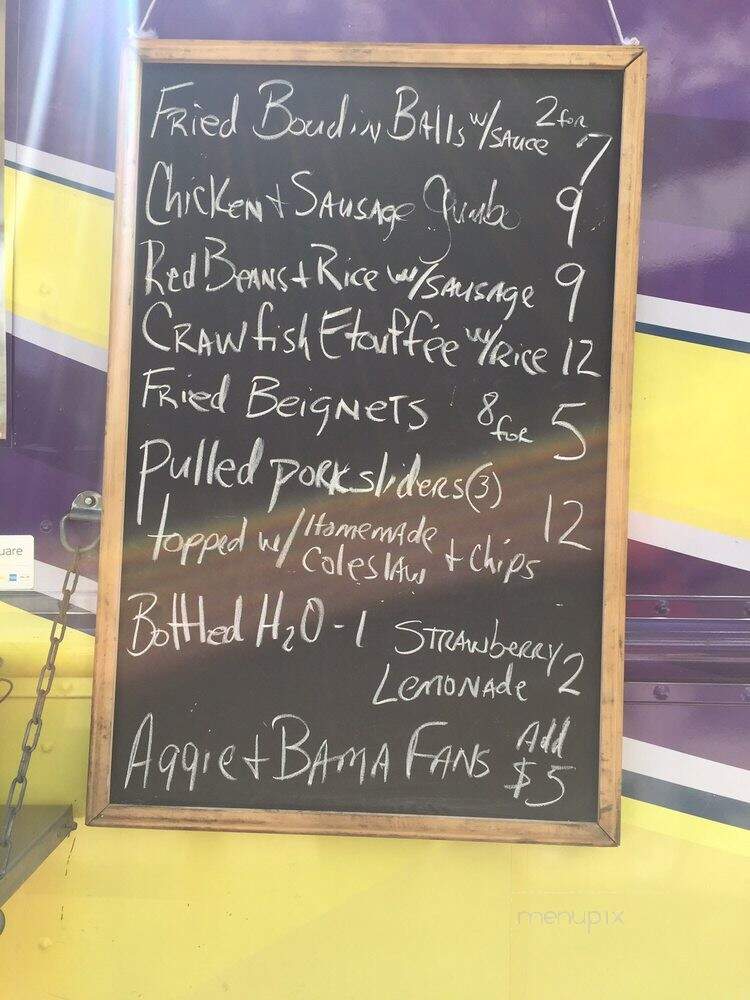 Fried Boudin Balls w/ sauce 2 for 7
Chicken + Sausage Gumbo 9
Red Beans + Rice w/ sausage 9
Crawfish Etouffée w/ Rice 12
Fried Beignets 8 for 5
Pulled pork sliders (3)
topped w/ Homemade Coleslaw + Chips 12
Bottled H2O - 1
Strawberry
Lemonade 2
Aggie + BAMA FANS Add $5
uare
menupix